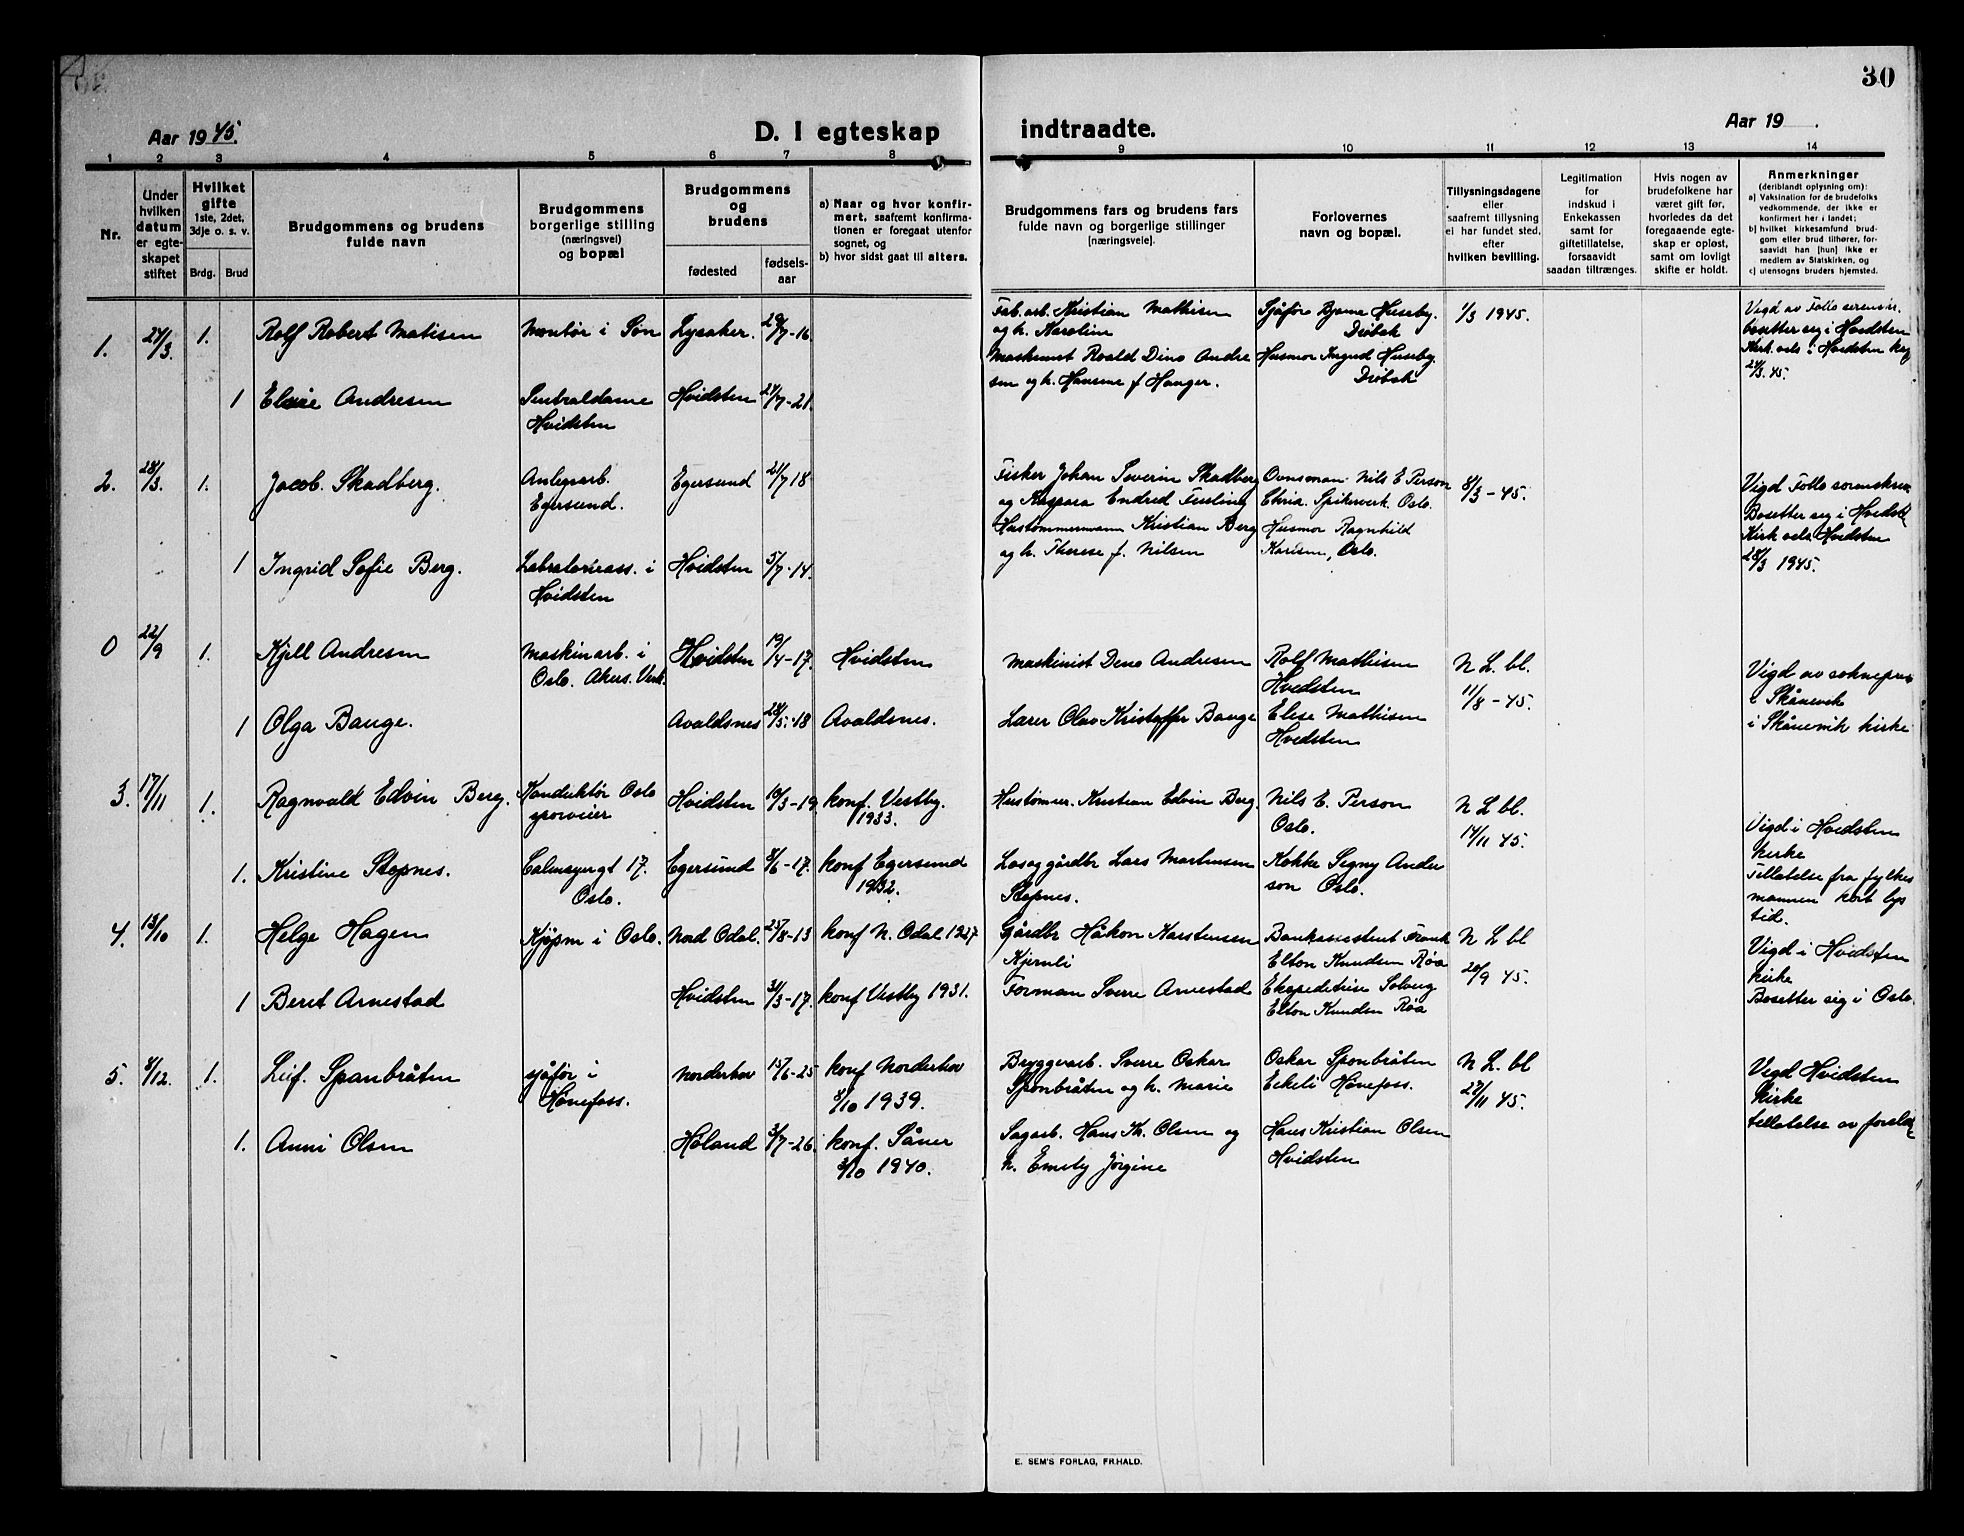 30
Aar 1945.
D. I egteskap indtraadte.
Aar 19 .
1 2 3 4 5 6 7 8 9 10 11 12 13 14
Nr.
Under hvilken datum er egteskapet stiftet
Hvilket gifte
1ste, 2det, 3dje o. s. v.
Brdg. Brud
Brudgommens og brudens
fulde navn
Brudgommens
borgerlige stilling
(næringsvei)
og bopæl
Brudgommens
og
brudens
fødested
fødsels-
aar
a) Naar og hvor konfir-
mert, saafremt konfirma-
tionen er foregaat utenfor
sognet, og
b) hvor sidst gaat til alters.
Brudgommens fars og brudens fars
fulde navn og borgerlige stillinger
(næringsveie).
Forlovernes
navn og bopæl.
Tillysningsdagene
eller
saafremt tillysning
ei har fundet sted,
efter
hvilken bevilling.
Legitimation
for
indskud i
Enkekassen
samt for
giftetillatelse,
forsaavidt
saadan tiltrænges.
Hvis nogen av
brudefolkene har
været gift før,
hvorledes da det
foregaaende egte-
skap er opløst,
samt om lovligt
skifte er holdt.
Anmerkninger
(deriblandt oplysning om):
a) Vaksination for de brudefolks
vedkommende, der ikke er
konfirmert her i landet;
b) hvilket kirkesamfund brud-
gom eller brud tilhører, for-
saavidt han [hun] ikke er
medlem av Statskirken, og
c) utensogns bruders hjemsted.
1. 24/3. 1. Rolf Robert Matisen Montør i Søn Lysaker. 29/7-16
Fab.arb. Kristian Mathisen
og h. Karoline
Sjåfør Bjarne Huseby.
Drøbak
1/3 1945.
Vigd av Follo sorenskr.
bosetter sig i Hvidsten
Kirk. vels. i Hvidsten kap
24/3. 45.
1 Elsie Andresen Sentraldame
Hvidsten
Hvidsten 24/7-21.
Maskinist Roald Dino Andre
sen og h. Hansine f Hauger.
Husmor Ingrid Huseby
Drøbak
2. 28/3. 1. Jacob. Skadberg. Anlegsarb.
Egersund.
Egersund 21/7 18
Fisker Johan Severin Skadberg
og Kaspara Endred
Ovnsman Nils E Person
Chria. Spikverk. Oslo.
8/3-45.
Vigd Follo sorenskr
Bosetter sig i Hvidst
Kirk. vels. Hvidsten
28/3 1945.
1 Ingrid Sofie Berg. Labratorieass. i
Hvidsten
Hvidsten 5/7-14.
Hustømmermann Kristian Berg
og h. Therese f. Nilsen
Husmor Ragnhild
Karlsen, Oslo.
0 22/9 1. Kjell Andresen Maskinarb. i
Oslo. Akers. Verk.
Hvidsten 19/4-17. Hvidsten
Maskinist Deno Andresen
Rolf Mathisen
Hvidsten
N L. bl.
11/8-45.
Vigd av soknepr
i Skånevik
i Skånevik kirke
1 Olga Bauge. Avaldsnes 28/5.18 Avaldsnes.
Lærer Olav Kristoffer Bauge
Elise Mathisen
Hvidsten
3. 17/11 1. Ragnvald Edvin Berg. Konduktør Oslo
sporveier
Hvidsten 19/3-19. konf. Vestby.
1933.
Hustømer. Kristian Edvin Berg.
Nils E. Person
Oslo.
N L bl.
14/11 45.
Vigd i Hvidsten
kirke
Tillatelse fra fylkes
mannen kort lys
tid.
1. Kristine Stapnes. Calmeyergt 17.
Oslo.
Egersund 8/6-17. konf Egersund
1932.
Los og gårdbr Lars Martinsen
Stapnes.
Kokke Segny Ander
son Oslo.
4. 13/10 1. Helge Hagen Kjøpm i Oslo. Nord Odal. 25/8-13 konf N. Odal 1927
Gårdbr Håkon Karstensen
Kjernli
Bankassistent Frank
Elton Knudsen Røa
N L bl
20/9 45.
Vigd i Hvidsten
kirke
Bosetter sig i Oslo.
1 Beret Arnestad Hvidsten 31/3-17. konf Vestby 1931.
Forman Sverre Arnestad
Ekspeditrise Solveig
Elton Knudsen Røa
5. 8/12. 1. Leif. Spanbråten sjåfør i
Hønefoss.
Norderhov 15/6-25 konf Norderhov
8/10 1939.
Bryggerarb. Sverre Oskar
Sponbråten og h. Marie
Oskar Sponbråten
Eikeli Hønefoss.
N L. bl
27/11 45.
Vigd Hvidsten
kirke
tillatelse av
1. Anni Olsen Høland 3/7-26. konf. Såner
3/10 1940.
Sagarb. Hans Kr. Olsen og
h. Emely Jørgine
Hans Kristian Olsen
Hvidsten
E. SEM'S FORLAG, FR.HALD.